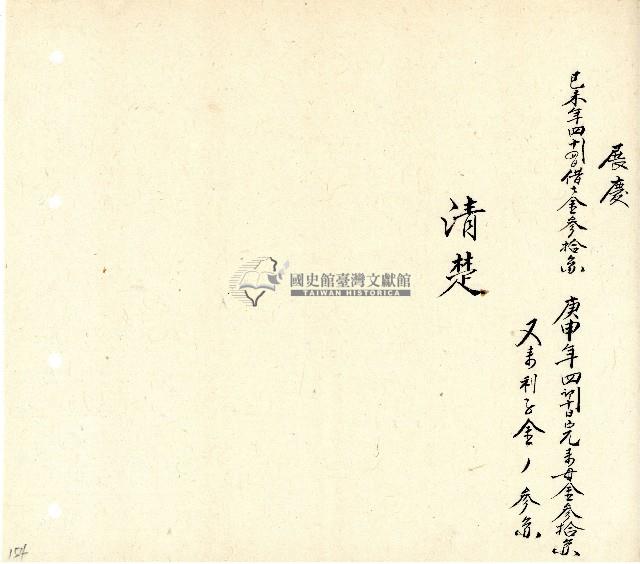 展慶
己未年四月十四日借去金參拾員
庚申年四月初十日完來母金參拾員
又來利子金ノ參員
清楚
國史館臺灣文獻館
TAIWAN HISTORICA
154